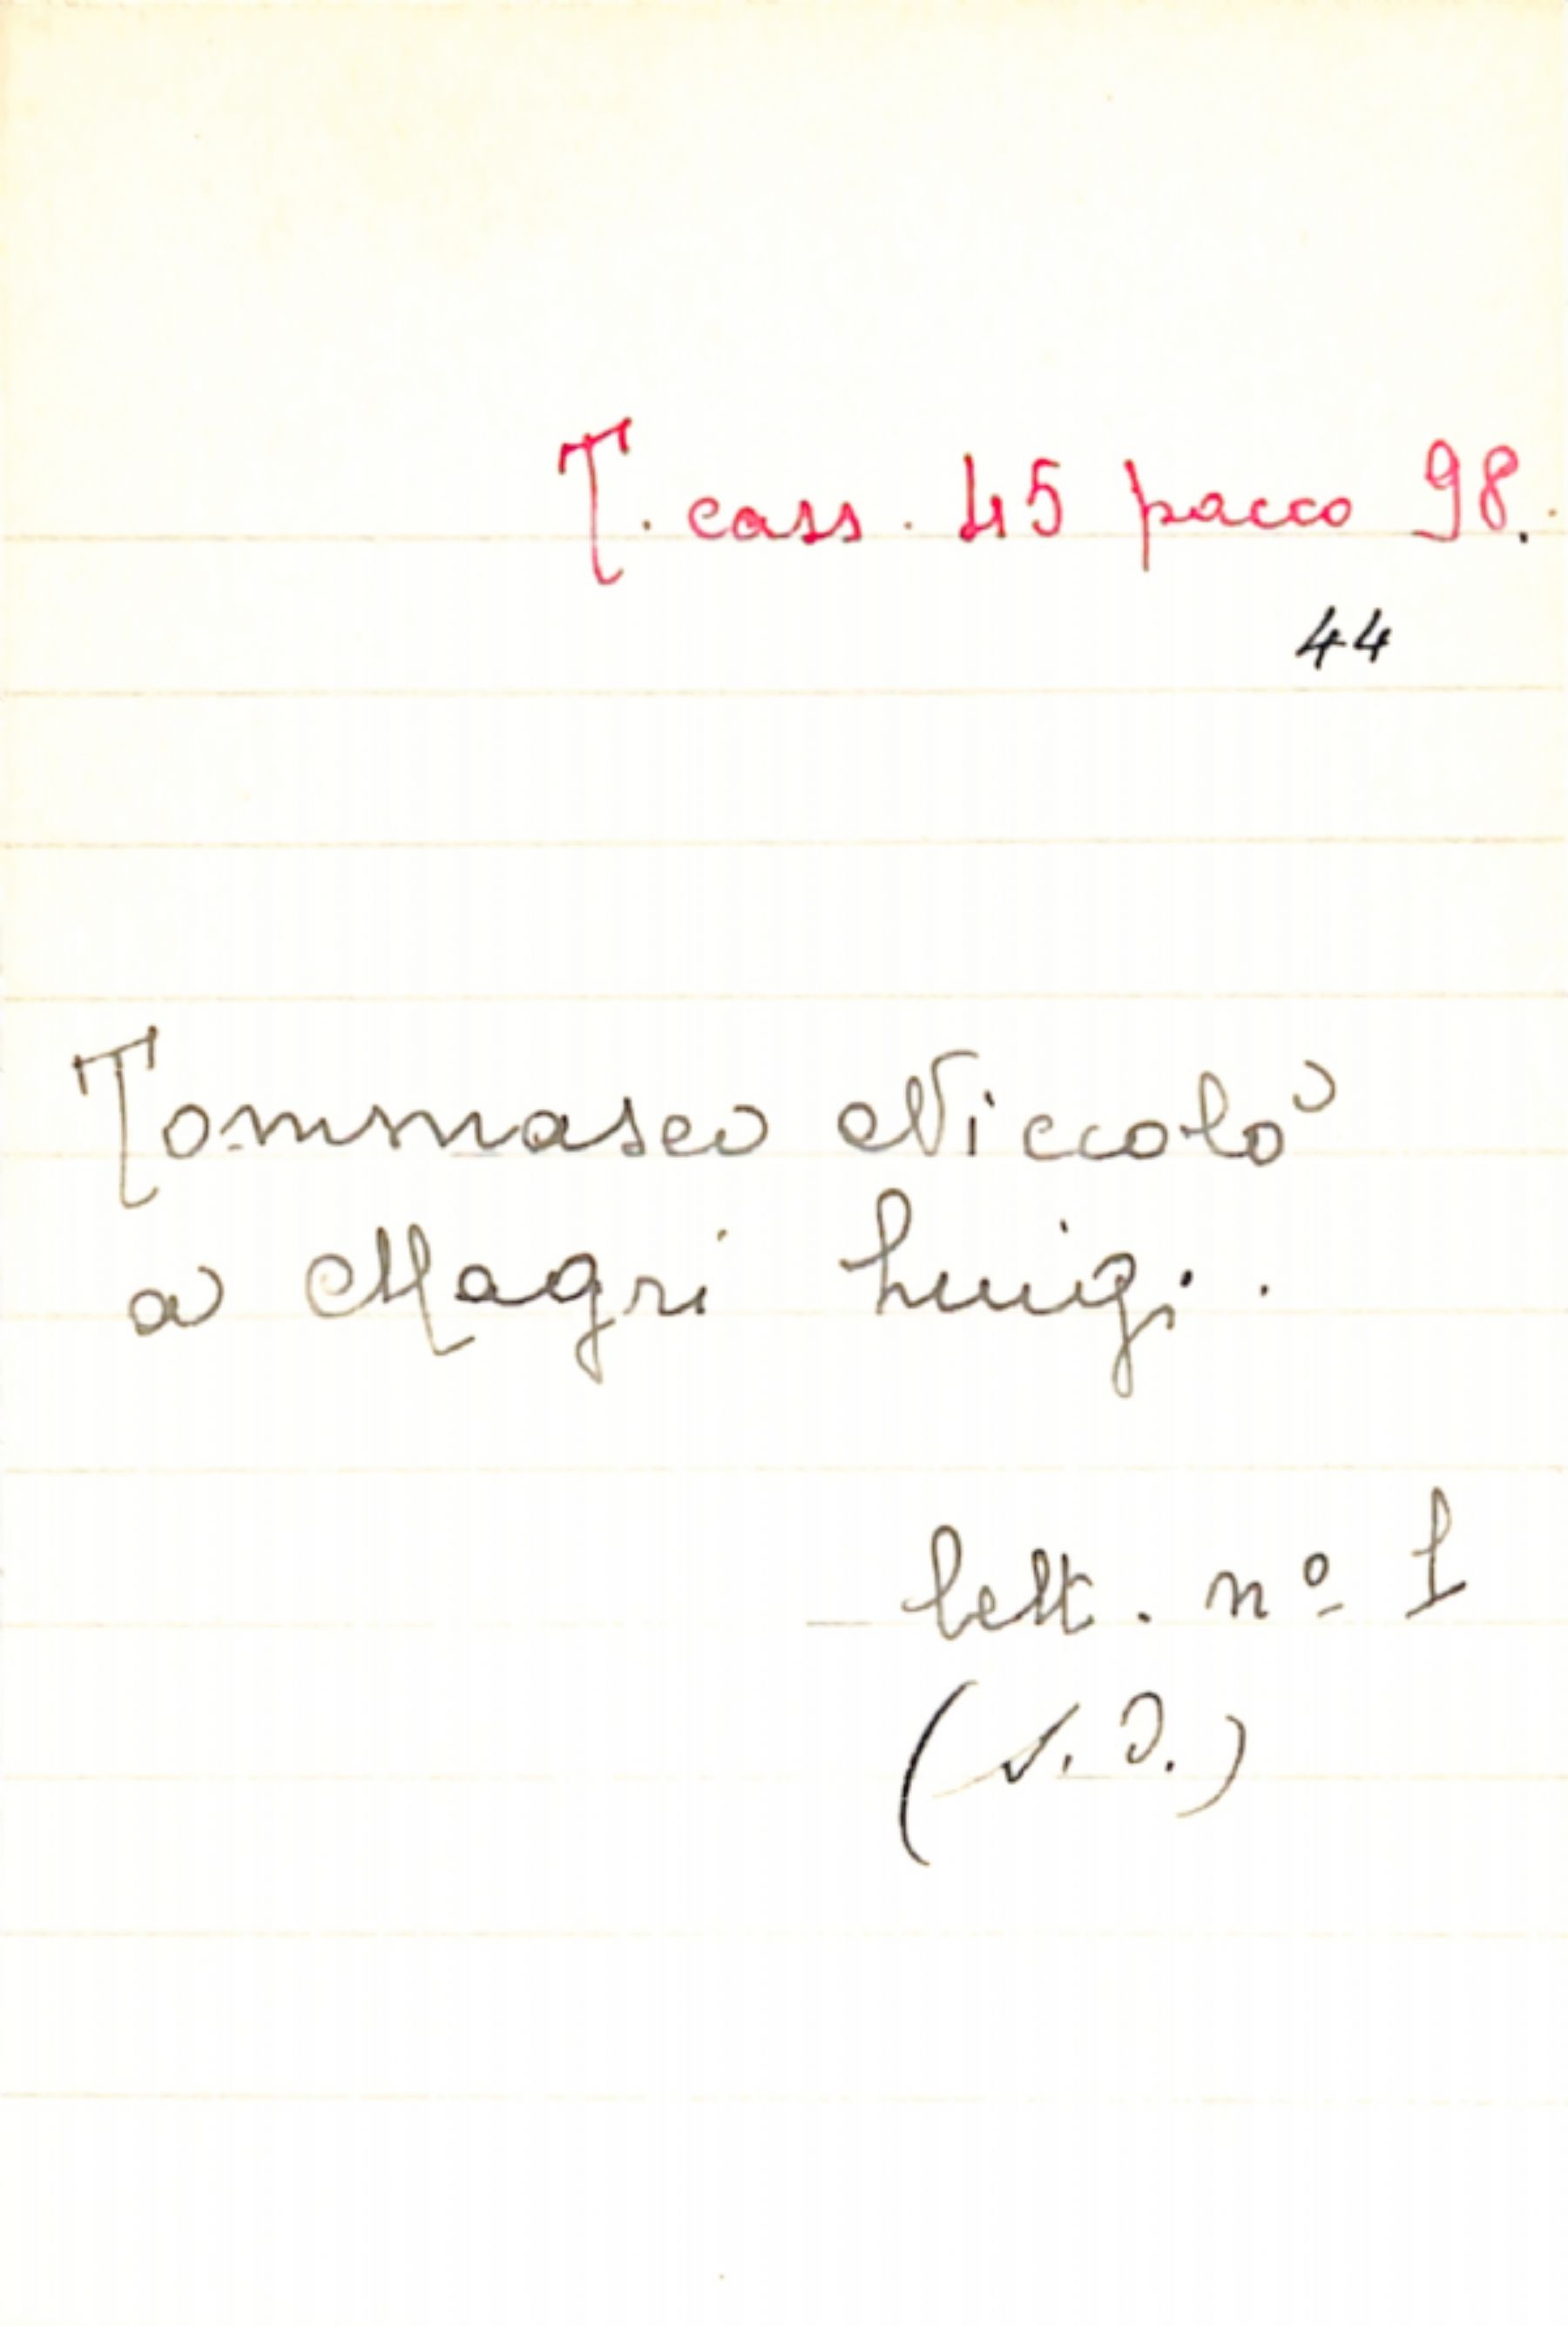 T. cass. 45 pacco 98.
44
Tommaseo Niccolò
a Magri Luigi.
lett. nº 1
(s. d.)